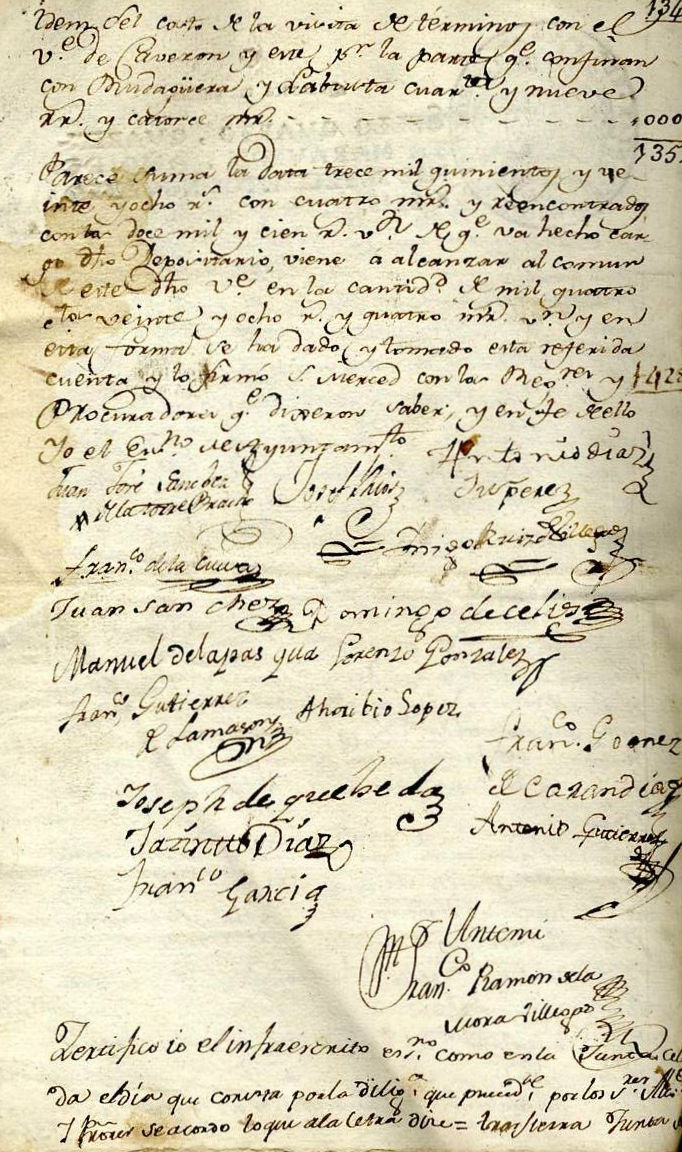 134
idem del costo de la visita de términos con el
v.e de Caveron y este pr. la parte q.e confinan
con Rudagüera y Labusta cuar.ta y nueve
rr. y catorce mr. - - - - - - - - - - - - - 000
135
Parece suma la data trece mil quinientos y ve-
inte y ocho r.s con cuatro mrs. y reencontrados
con los doce mil y cien r. v.n de q.e va hecho car-
go dho Depositario, viene a alcanzar al comun
de este dho V.e en la cantid.d de mil quatro
c.tos veinte y ocho r.s y quatro mr. v.n y en
esta forma se ha dado y tomado esta referida
cuenta y lo firmó S. Merced con los Reg.res y 1428
Procuradores q.e dixeron saber, y en fe de ello
yo el Es.no de Ayuntam.to Antonio diaz
Juan José Sanchez Josef Ruiz Ju perez
de la torre
Domingo Ruiz Villegas
fran.co de la Cueva
Juan san chez Domingo de celis
Manuel delapas qua Lorenzo Gonzalez
fran.co Gutierrez Thoribio Lopez
de Lamason fran.co Gomez
Joseph de quebeda de Carandia
Jazintto Diaz Antonio Gutierrez
fran.co Garcia
Antemi
Fran.co Ramon de la
Mora Villegas
Zertifico io el infraescrito es.no como en la Junta cel
da el dia que consta por la dilig.a que preced.e por los s.res
y se acordo lo que a la letra dice = trassierra Junta